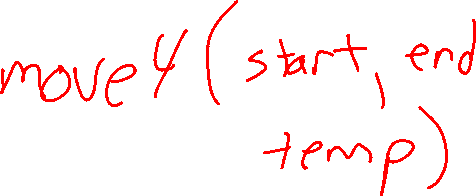 move4(start, end
temp)